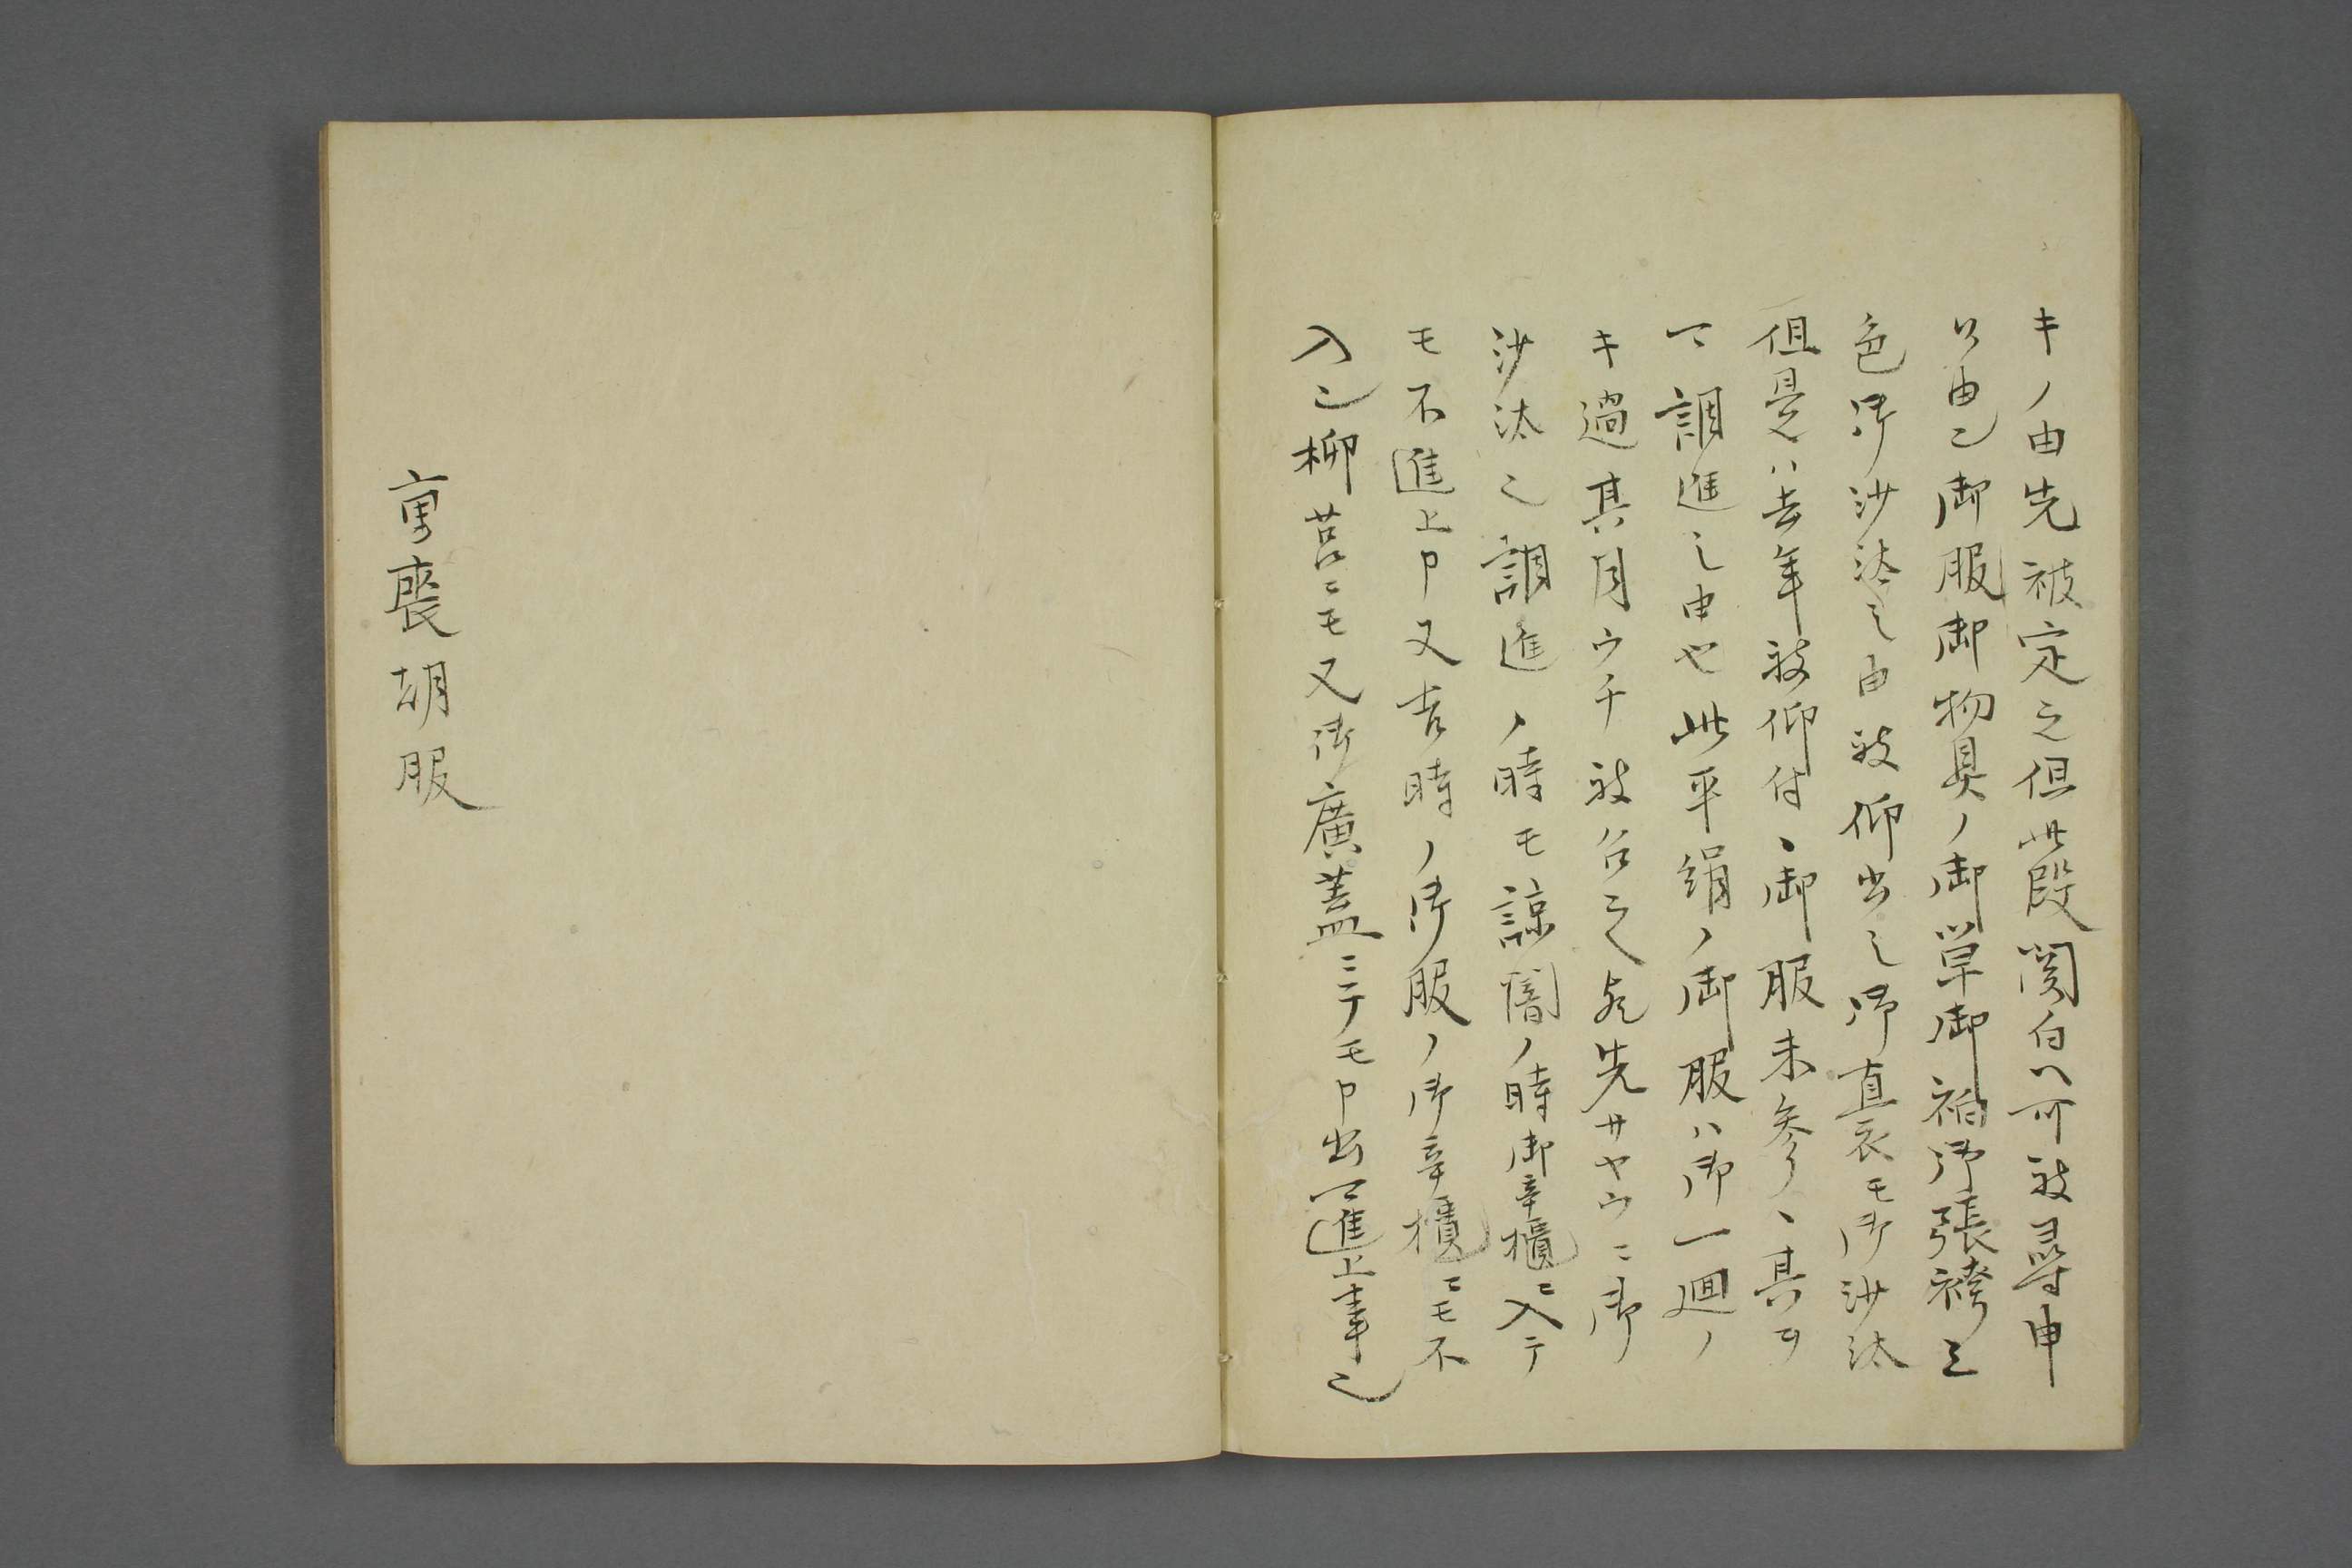 キノ由先被定之但此段関白ヘ可被尋申
之由也御服御物具ノ御単御袙御張袴三
色御沙汰之由被仰出之御直衣モ御沙汰
但是ハ去年被仰付御服未参其
可調進之由也此平絹ノ御服ハ御一廻ノ
キ過其月ウチ被召之先サヤウニ御
沙汰之調進ノ時モ諒闇ノ時御辛櫃ニ入テ
モ不進上申又吉時ノ御服ノ御辛櫃ニモ不
入之柳筥ニモ又御廣蓋ニテモ申出可進上事也
亮喪胡服